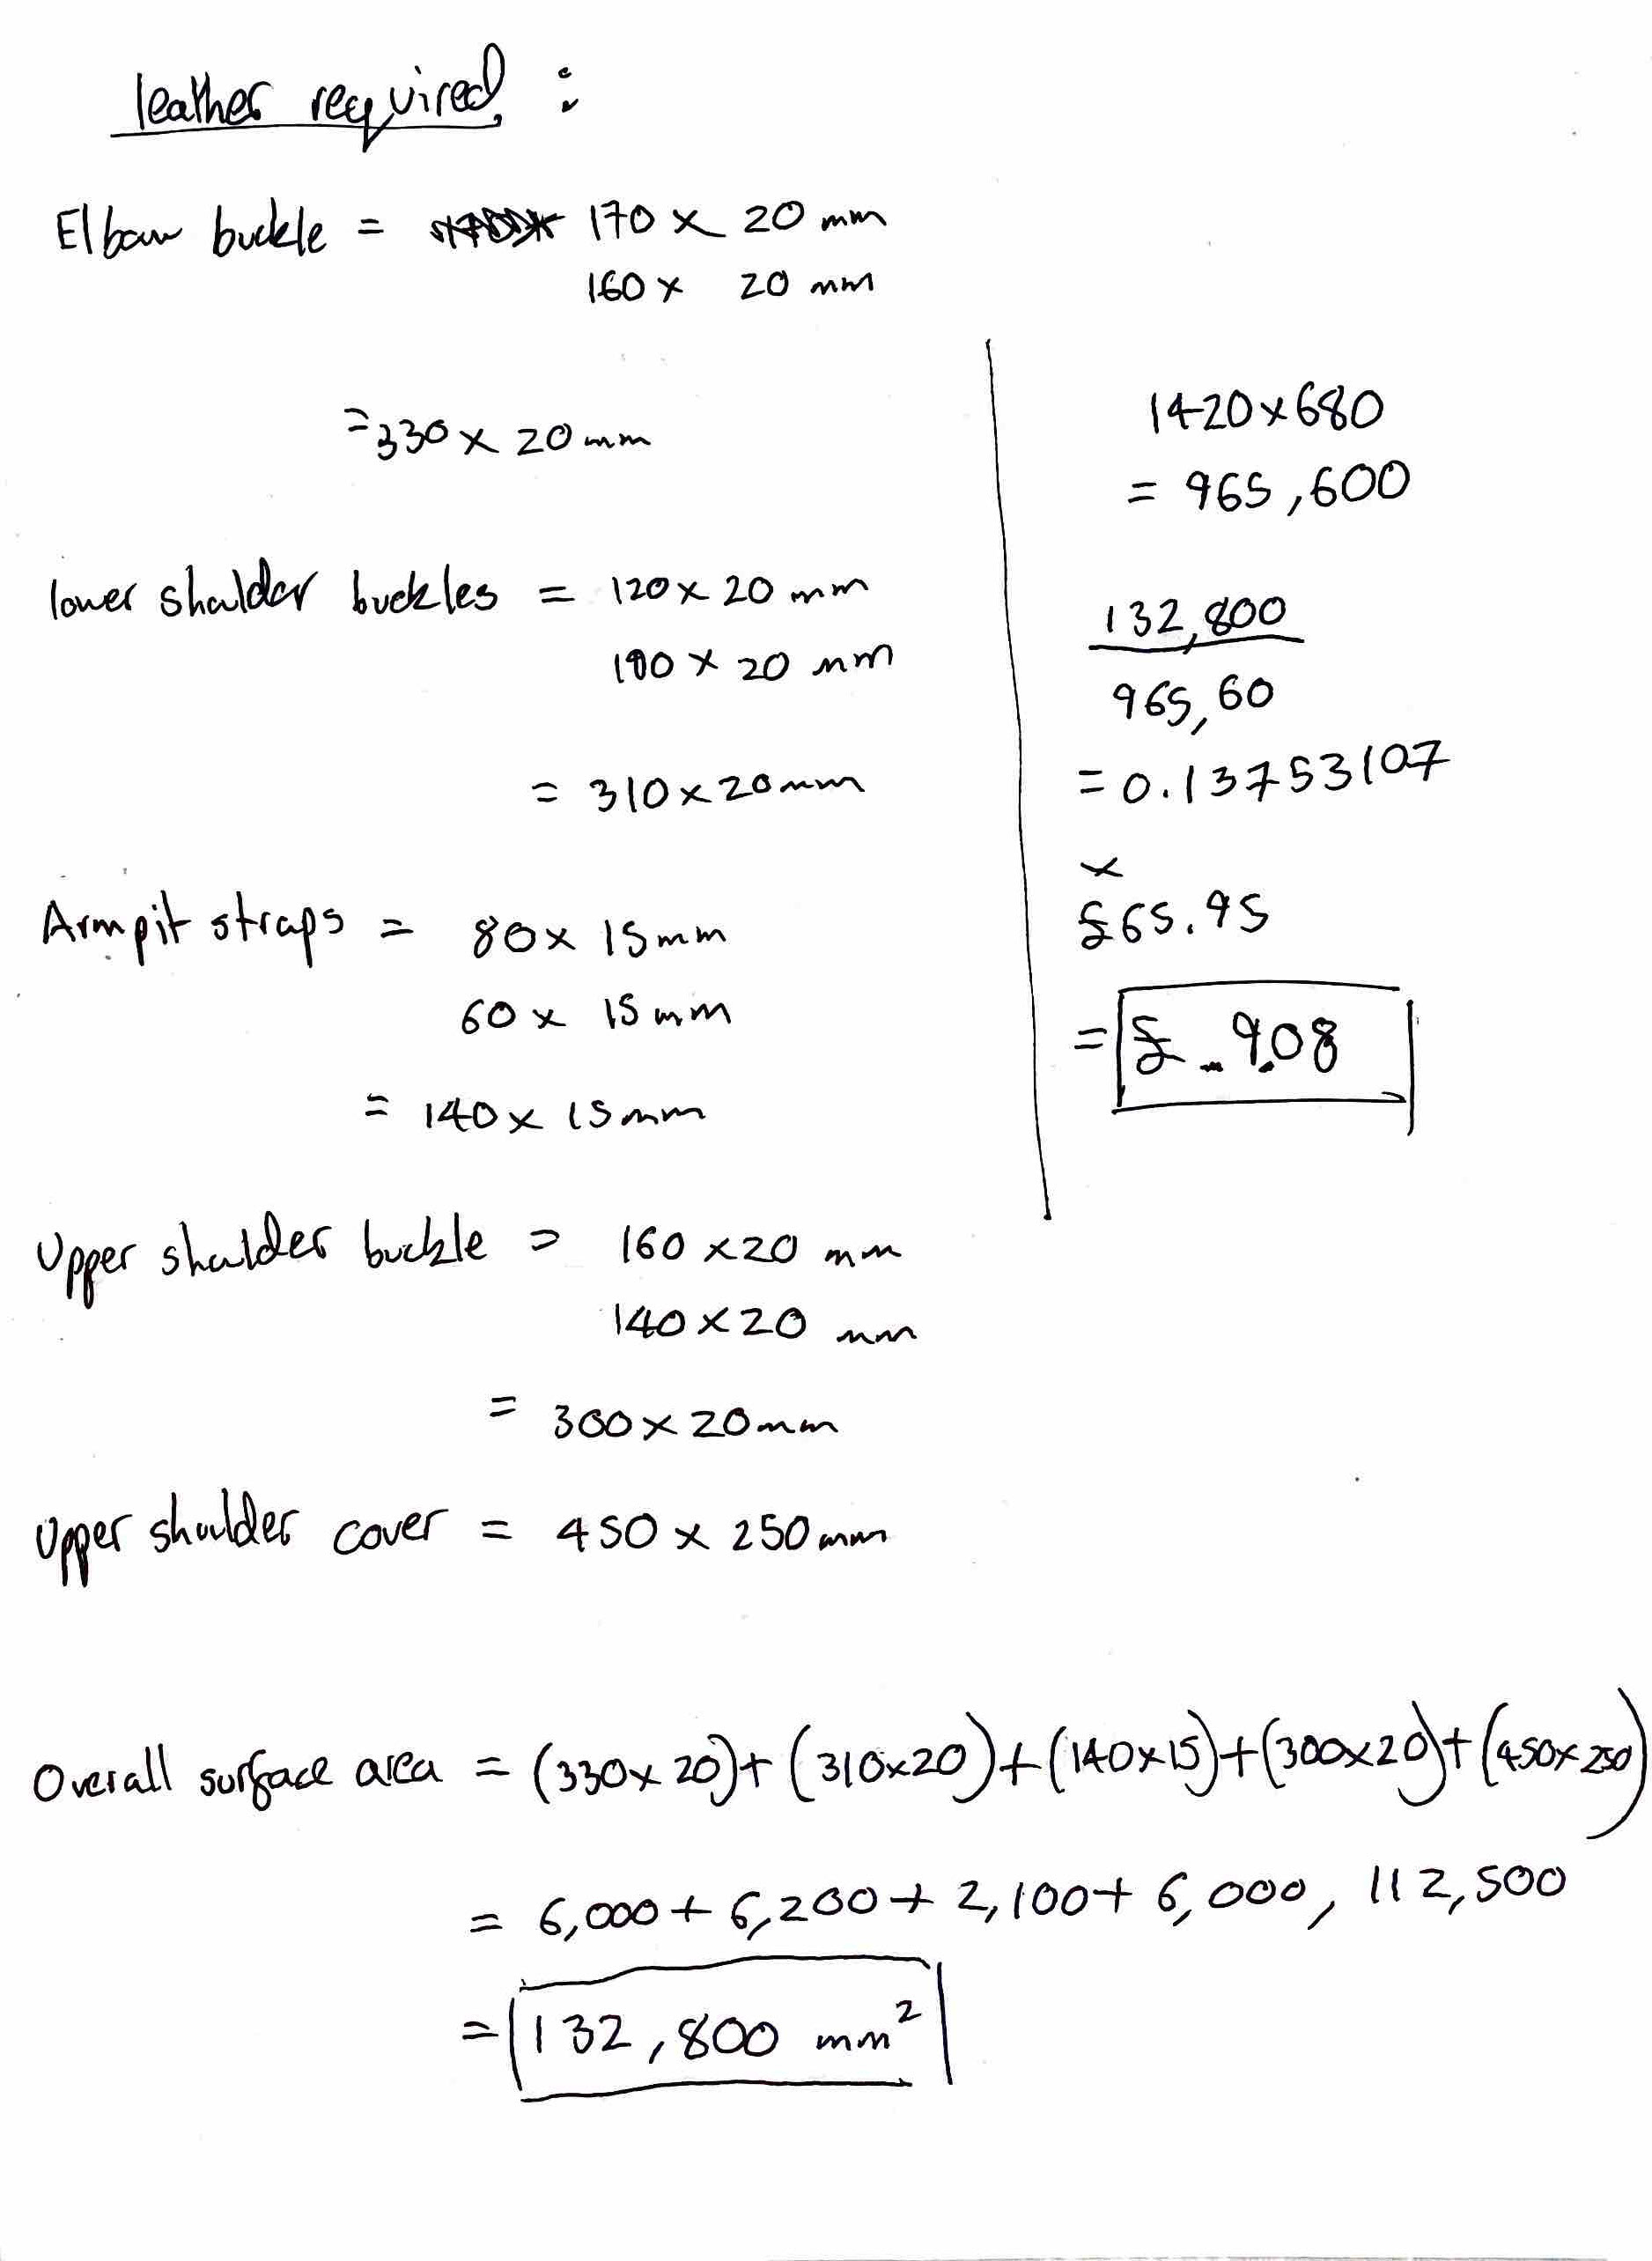 leather required :
Elbow buckle = 170 x 20 mm
160 x 20 mm
= 330 x 20 mm
lower shoulder buckles = 120 x 20 mm
190 x 20 mm
= 310 x 20 mm
Armpit straps = 80 x 15 mm
60 x 15 mm
= 140 x 15 mm
Upper shoulder buckle = 160 x 20 mm
140 x 20 mm
= 300 x 20 mm
Upper shoulder cover = 450 x 250 mm
1420 x 680
= 965,600
132,800
965,60
= 0.13753107
x
£65.95
= £ 9.08
Overall surface area = (330 x 20) + (310 x 20) + (140 x 15) + (300 x 20) + (450 x 250)
= 6,000 + 6,200 + 2,100 + 6,000, 112,500
= 132,800 mm²